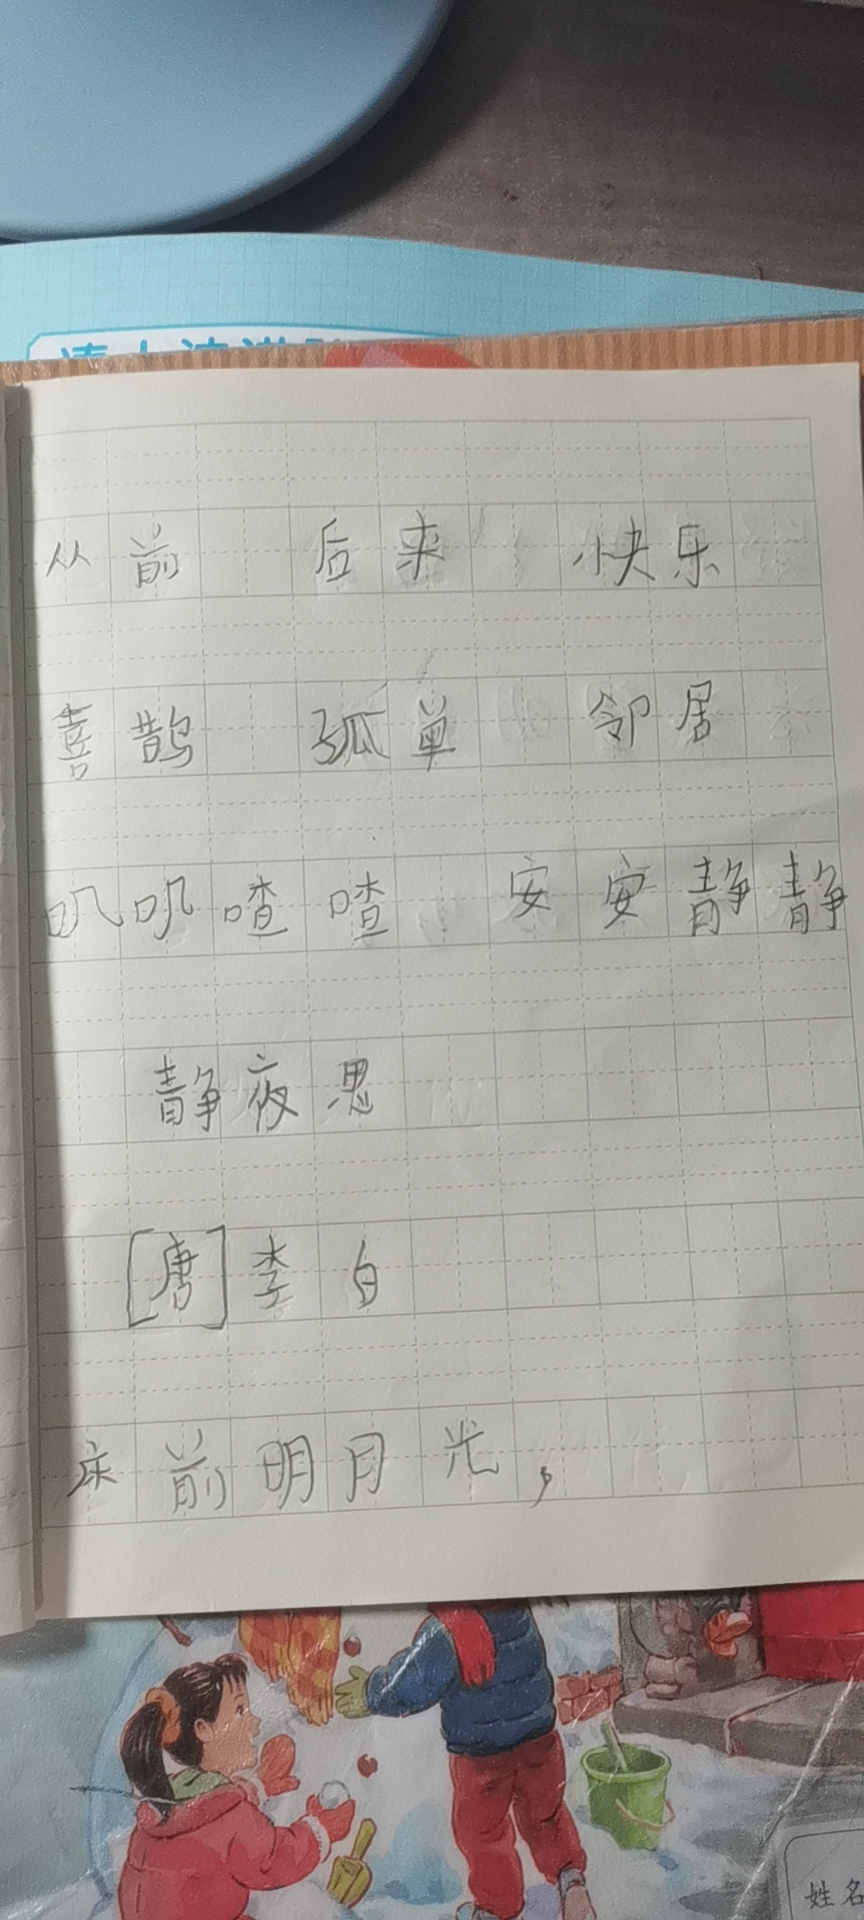 从前 后来 快乐
喜鹊 孤单 邻居
叽叽喳喳 安安静静
静夜思
[唐]李白
床前明月光，
姓名